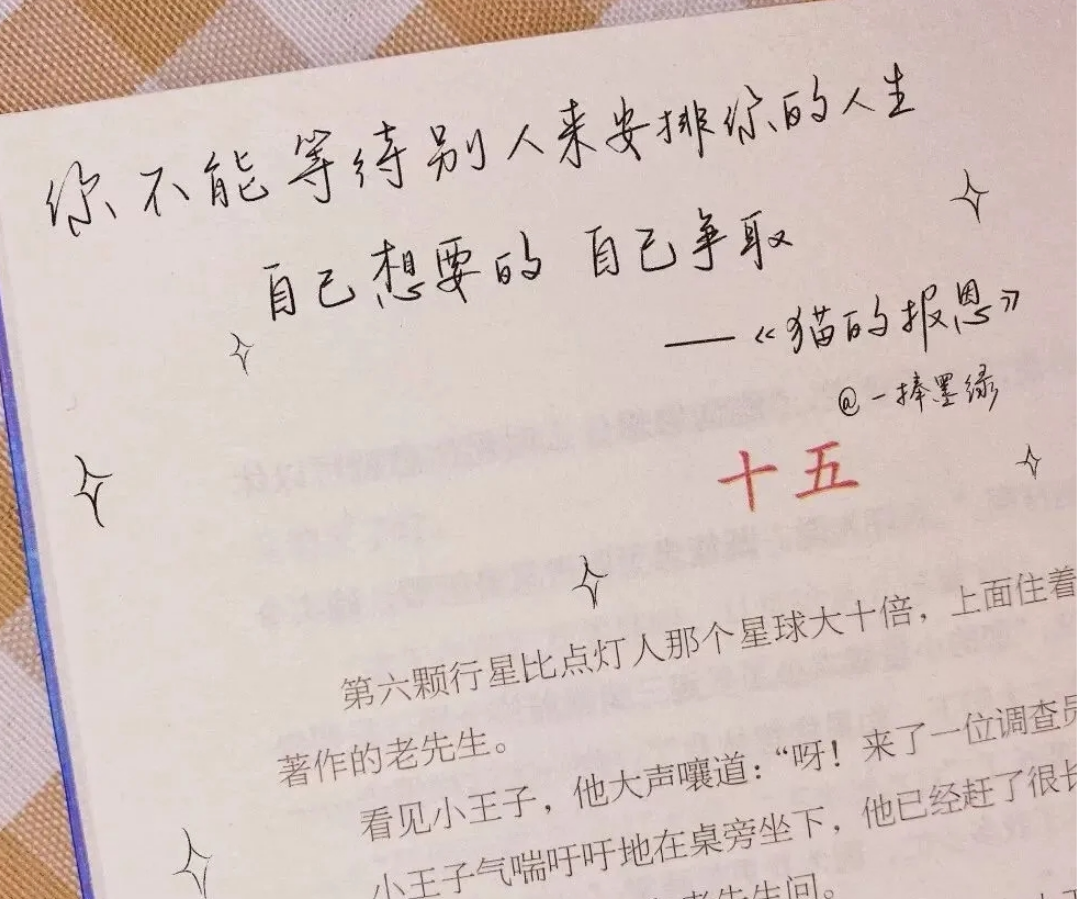 你不能等待别人来安排你的人生
自己想要的 自己争取
——《猫的报恩》
@一捧墨绿
十五
第六颗行星比点灯人那个星球大十倍，上面住着
著作的老先生。
看见小王子，他大声嚷道：“呀！来了一位调查员
小王子气喘吁吁地在桌旁坐下，他已经赶了很长
老先生问。